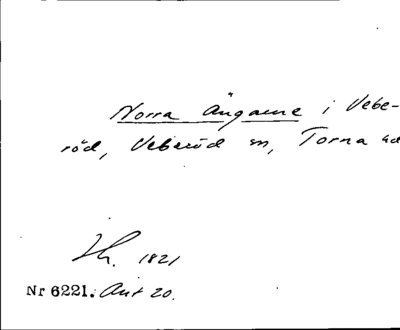 Norra Ängarne i Vebe-
röd, Veberöd sn, Torna hd
1821
Nr 6221. Akt 20.